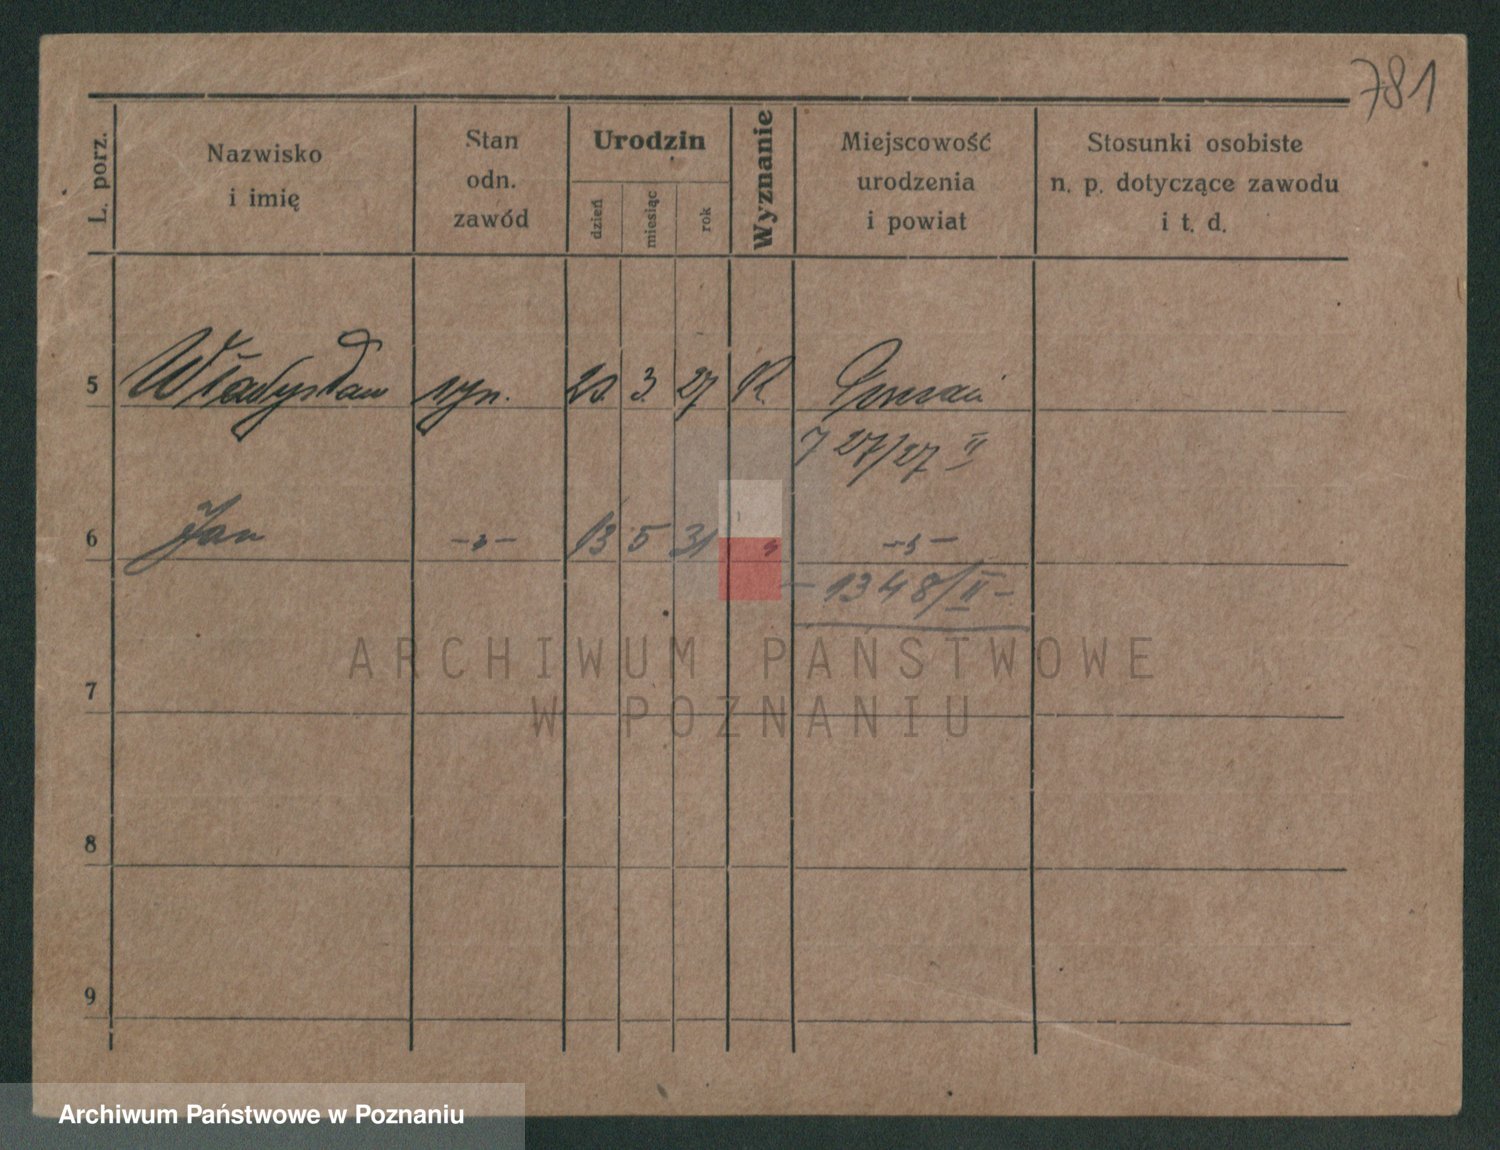 781
L. porz.
Nazwisko
i imię
Stan
odn.
zawód
Urodzin
dzień
miesiąc
rok
Wyznanie
Miejscowość
urodzenia
i powiat
Stosunki osobiste
n. p. dotyczące zawodu
i t. d.
5 Władysław syn. 3. 27 R.
27/27 II
6 Jan -„- 13 5 31 „ -„-
- 1348/II -
ARCHIWUM PAŃSTWOWE
W POZNANIU
7
8
9
Archiwum Państwowe w Poznaniu